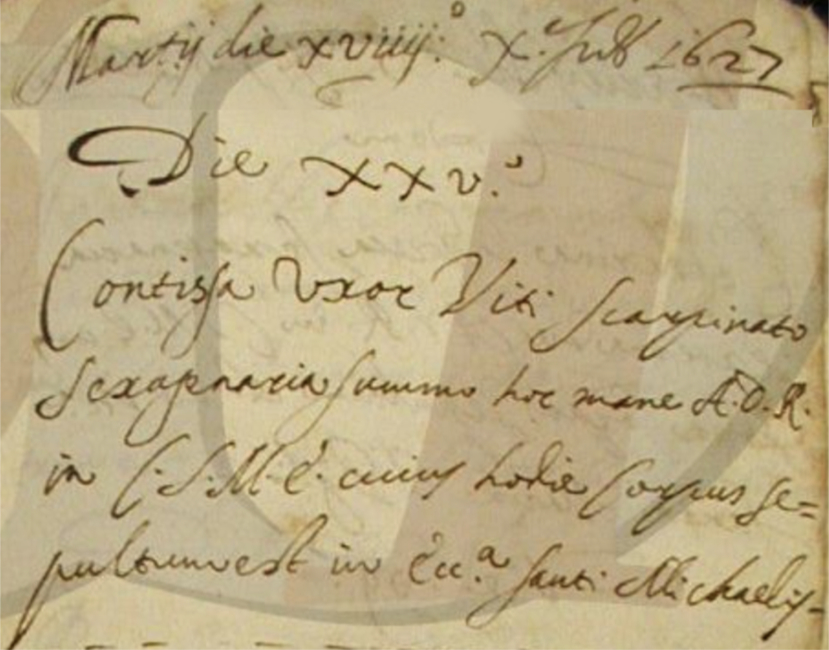 Martij die xviiij.º X.e Ind. 1627
Die xxv.º
Contissa Uxor Viti Scarpinato
sexagenaria summo hoc mane A.D.R.
in C.S.M.E. cuius hodie Corpus se=
pultum est in Ecc.a santi Michaelis